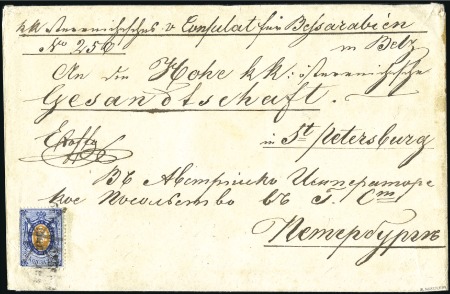 kk österreichisches v Consulat für Bessarabien
No 256 in Belz
An die Hohe kk: österreichische
Gesandtschaft.
in St petersburg
Въ Австрійско Императорс
кое Посольство въ Г. Ст
Петербургъ